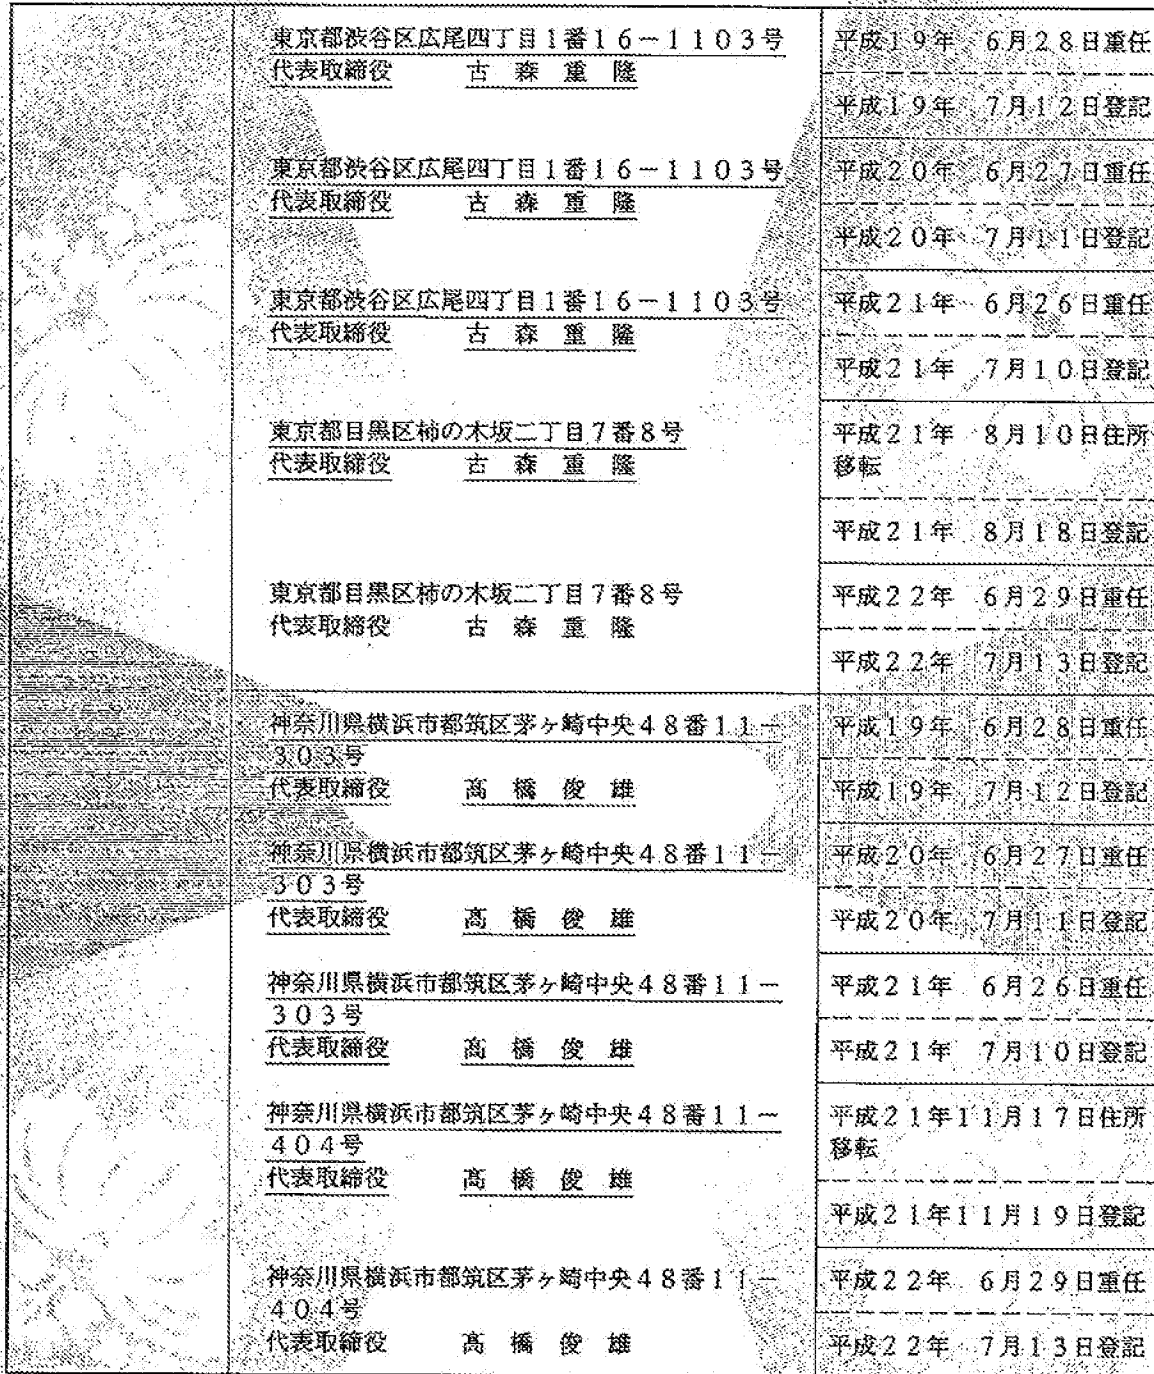 東京都渋谷区広尾四丁目1番16-1103号
代表取締役　古森重隆
平成19年　6月28日重任
平成19年　7月12日登記
東京都渋谷区広尾四丁目1番16-1103号
代表取締役　古森重隆
平成20年　6月27日重任
平成20年　7月11日登記
東京都渋谷区広尾四丁目1番16-1103号
代表取締役　古森重隆
平成21年　6月26日重任
平成21年　7月10日登記
東京都目黒区柿の木坂二丁目7番8号
代表取締役　古森重隆
平成21年　8月10日住所
移転
平成21年　8月18日登記
東京都目黒区柿の木坂二丁目7番8号
代表取締役　古森重隆
平成22年　6月29日重任
平成22年　7月13日登記
神奈川県横浜市都筑区茅ヶ崎中央48番11-
303号
代表取締役　髙橋俊雄
平成19年　6月28日重任
平成19年　7月12日登記
神奈川県横浜市都筑区茅ヶ崎中央48番11-
303号
代表取締役　髙橋俊雄
平成20年　6月27日重任
平成20年　7月11日登記
神奈川県横浜市都筑区茅ヶ崎中央48番11-
303号
代表取締役　髙橋俊雄
平成21年　6月26日重任
平成21年　7月10日登記
神奈川県横浜市都筑区茅ヶ崎中央48番11-
404号
代表取締役　髙橋俊雄
平成21年11月17日住所
移転
平成21年11月19日登記
神奈川県横浜市都筑区茅ヶ崎中央48番11-
404号
代表取締役　髙橋俊雄
平成22年　6月29日重任
平成22年　7月13日登記